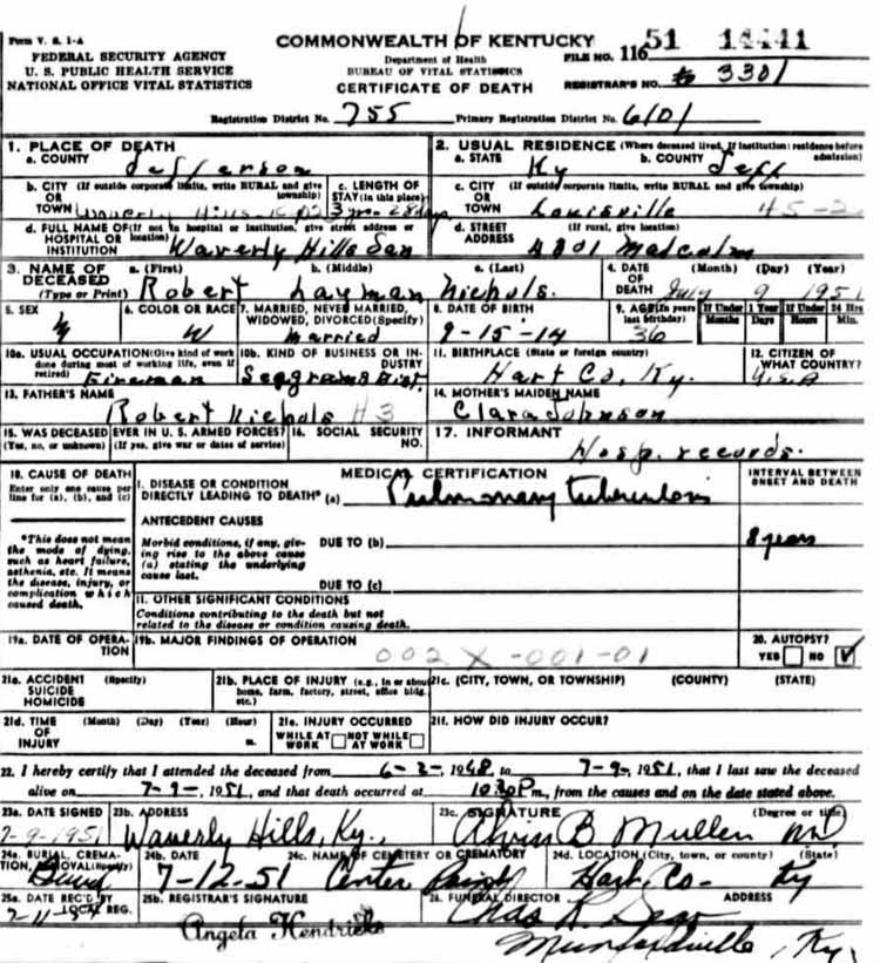 Form V. S. 1-A
FEDERAL SECURITY AGENCY
U. S. PUBLIC HEALTH SERVICE
NATIONAL OFFICE VITAL STATISTICS
COMMONWEALTH OF KENTUCKY
Department of Health
BUREAU OF VITAL STATISTICS
CERTIFICATE OF DEATH
FILE NO. 116 51 14441
REGISTRAR'S NO. 3301
Registration District No. 755 Primary Registration District No. 6101
1. PLACE OF DEATH
a. COUNTY Jefferson
b. CITY (If outside corporate limits, write RURAL and give township) OR TOWN Waverly Hills
c. LENGTH OF STAY (in this place) 3 yrs-28 days
d. FULL NAME OF (If not in hospital or institution, give street address or location) HOSPITAL OR INSTITUTION Waverly Hills San
2. USUAL RESIDENCE (Where deceased lived. If institution: residence before admission)
a. STATE Ky b. COUNTY Jeff
c. CITY (If outside corporate limits, write RURAL and give township) OR TOWN Louisville 45-2
d. STREET ADDRESS (If rural, give location) 4801 Malcolm
3. NAME OF DECEASED (Type or Print) a. (First) Robert b. (Middle) Layman c. (Last) Nichols.
4. DATE OF DEATH (Month) (Day) (Year) July 9 1951
5. SEX
6. COLOR OR RACE W
7. MARRIED, NEVER MARRIED, WIDOWED, DIVORCED (Specify) Married
8. DATE OF BIRTH 9-15-14
9. AGE (In years last birthday) 36 If Under 1 Year Months Days If Under 24 Hrs Hours Min.
10a. USUAL OCCUPATION (Give kind of work done during most of working life, even if retired) Fireman
10b. KIND OF BUSINESS OR INDUSTRY Seagrams Dist.
11. BIRTHPLACE (State or foreign country) Hart Co, Ky.
12. CITIZEN OF WHAT COUNTRY? U.S.A
13. FATHER'S NAME Robert Nichols #3
14. MOTHER'S MAIDEN NAME Clara Johnson
15. WAS DECEASED EVER IN U. S. ARMED FORCES? (Yes, no, or unknown) (If yes, give war or dates of service)
16. SOCIAL SECURITY NO.
17. INFORMANT Hosp. records.
18. CAUSE OF DEATH
Enter only one cause per line for (a), (b), and (c)
*This does not mean the mode of dying, such as heart failure, asthenia, etc. It means the disease, injury, or complication which caused death.
MEDICAL CERTIFICATION
I. DISEASE OR CONDITION DIRECTLY LEADING TO DEATH* (a) Pulmonary tuberculosis
INTERVAL BETWEEN ONSET AND DEATH
8 years
ANTECEDENT CAUSES
Morbid conditions, if any, giving rise to the above cause (a) stating the underlying cause last.
DUE TO (b)
DUE TO (c)
II. OTHER SIGNIFICANT CONDITIONS
Conditions contributing to the death but not related to the disease or condition causing death.
19a. DATE OF OPERATION
19b. MAJOR FINDINGS OF OPERATION
002 X -001-01
20. AUTOPSY?
YES NO ✓
21a. ACCIDENT SUICIDE HOMICIDE (Specify)
21b. PLACE OF INJURY (e.g., in or about home, farm, factory, street, office bldg. etc.)
21c. (CITY, TOWN, OR TOWNSHIP) (COUNTY) (STATE)
21d. TIME OF INJURY (Month) (Day) (Year) (Hour) m.
21e. INJURY OCCURRED WHILE AT WORK NOT WHILE AT WORK
21f. HOW DID INJURY OCCUR?
22. I hereby certify that I attended the deceased from 6-2-, 1948, to 7-9-, 1951, that I last saw the deceased
alive on 7-9-, 1951, and that death occurred at 10:30 Pm., from the causes and on the date stated above.
23a. DATE SIGNED 7-9-1951
23b. ADDRESS Waverly Hills, Ky.,
23c. SIGNATURE (Degree or title) Alvin B Mullen MD
24a. BURIAL, CREMATION, REMOVAL (Specify) Burial
24b. DATE 7-12-51
24c. NAME OF CEMETERY OR CREMATORY Center
24d. LOCATION (City, town, or county) (State) Hart Co- Ky
25a. DATE REC'D BY LOCAL REG. 7-11-
25b. REGISTRAR'S SIGNATURE Angela Hendricks
26. FUNERAL DIRECTOR ADDRESS
Munfordville, Ky.